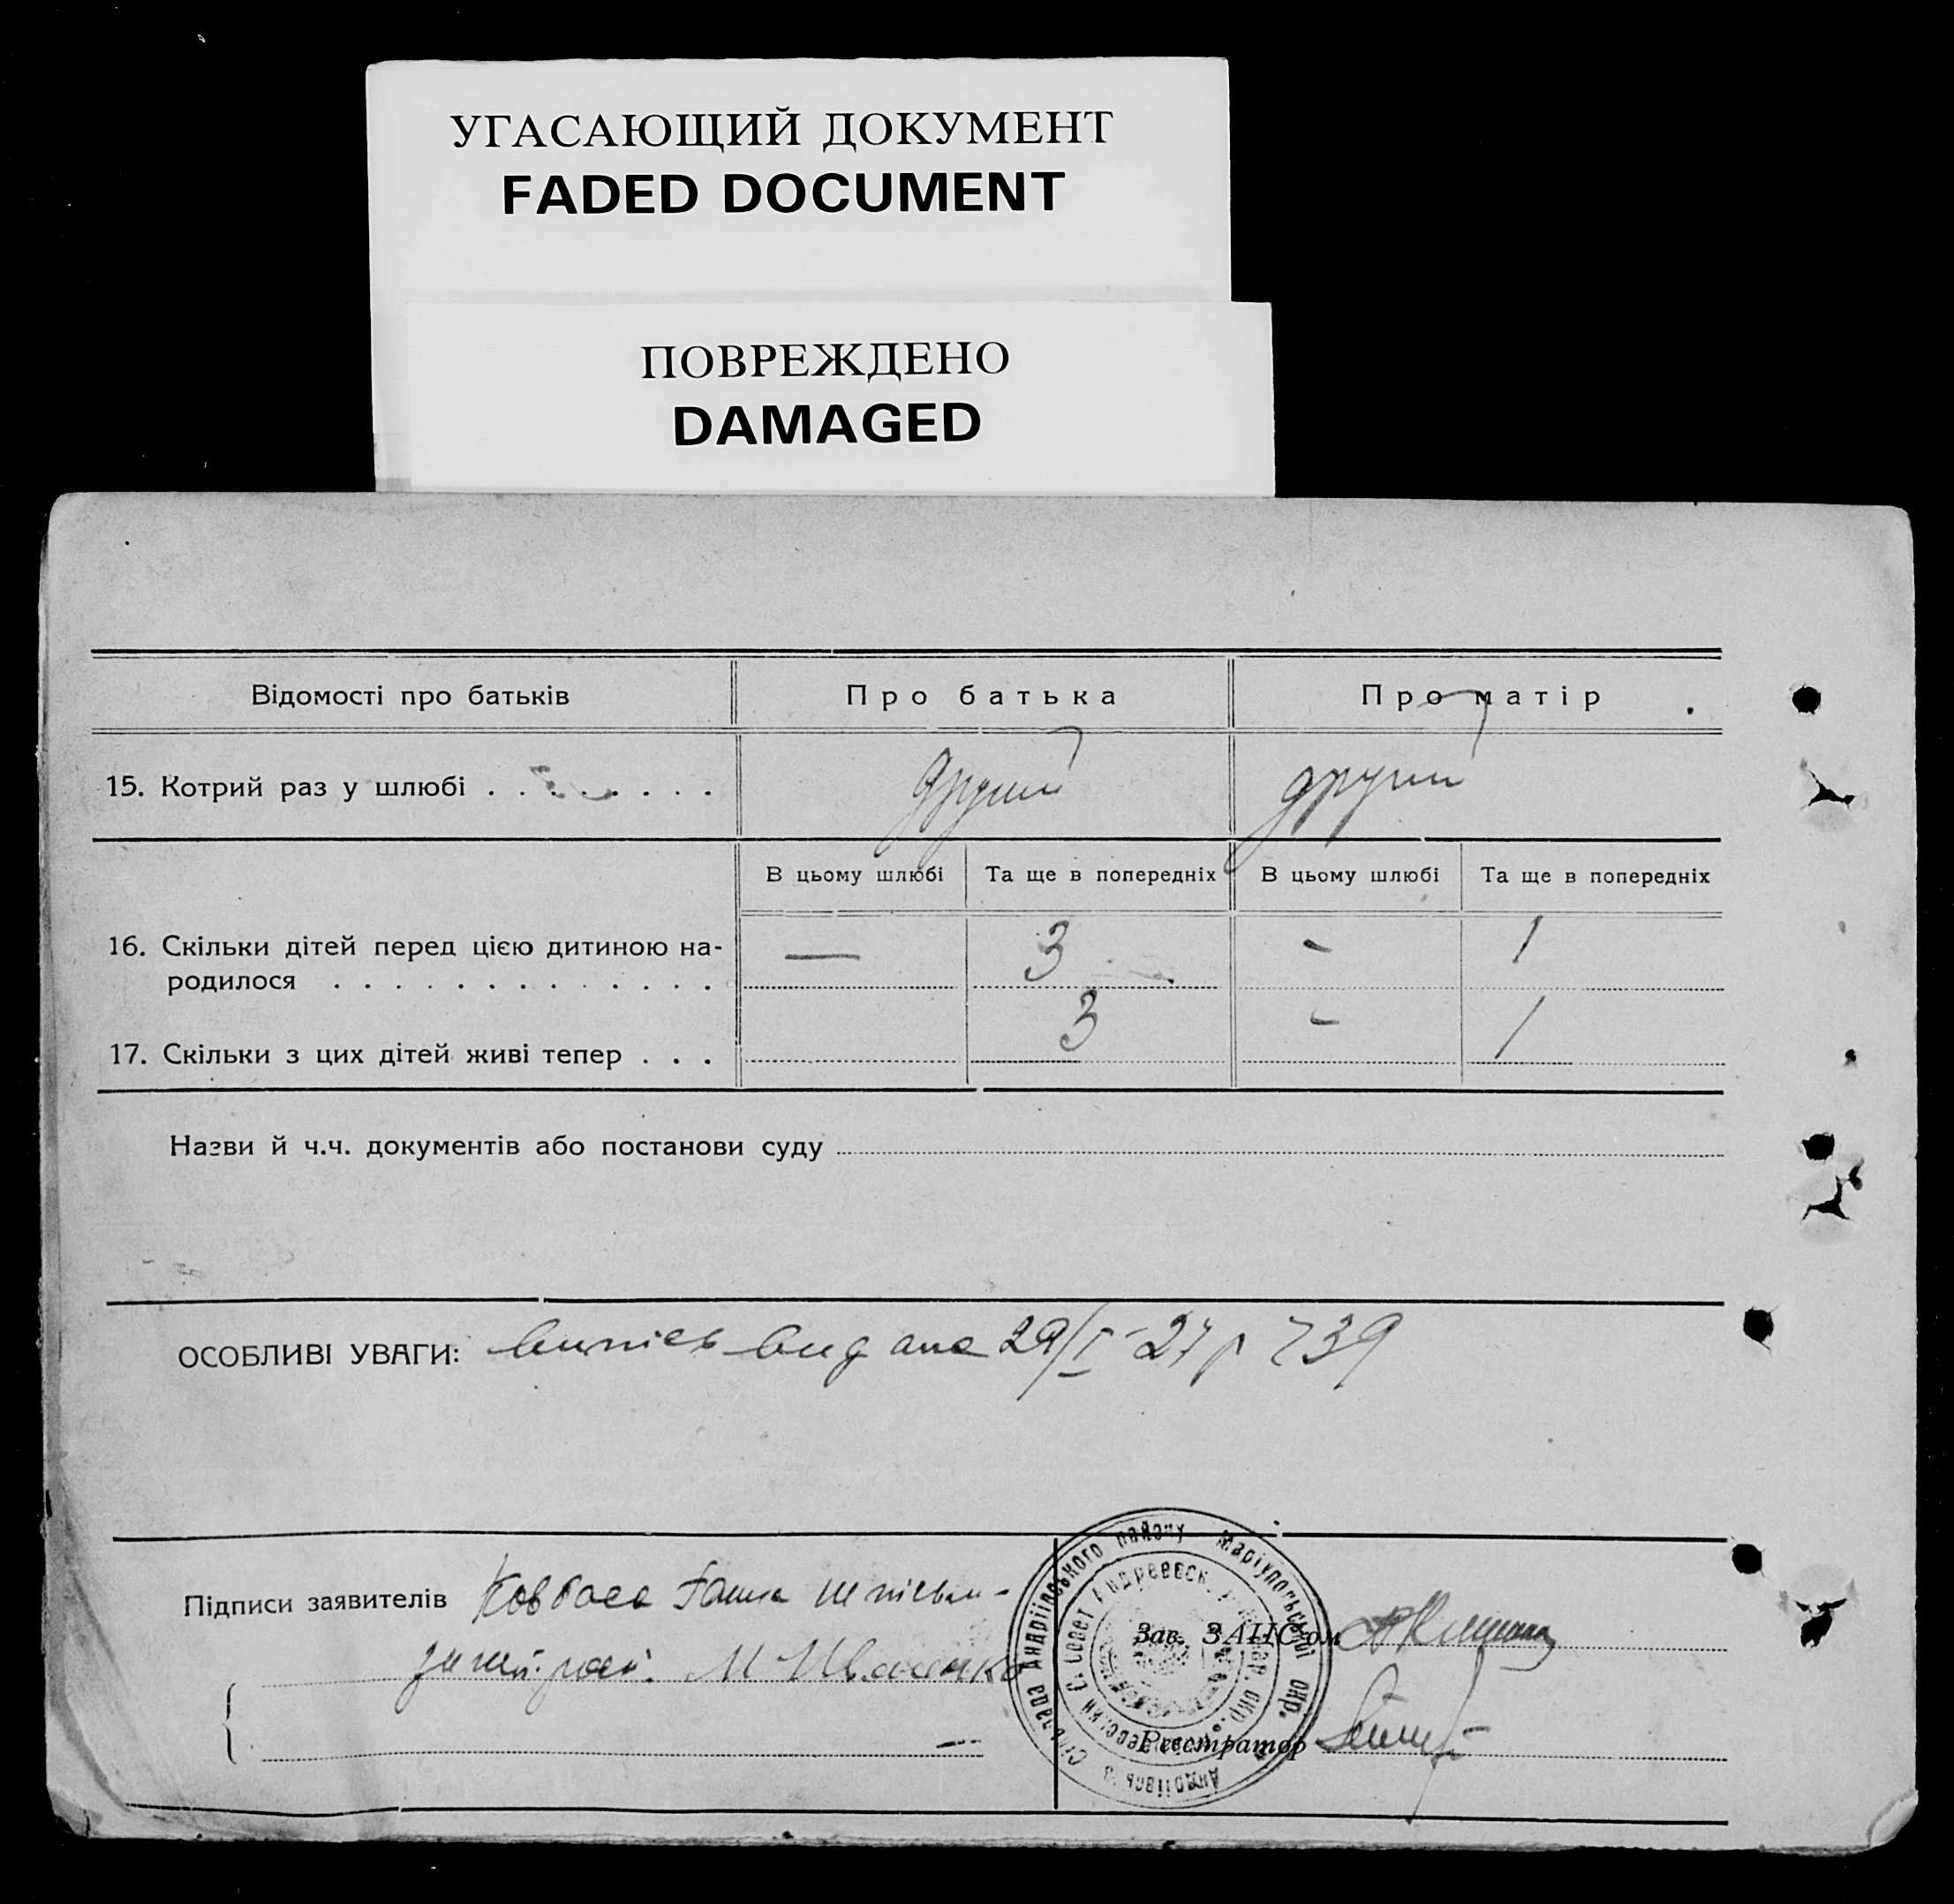 УГАСАЮЩИЙ ДОКУМЕНТ
FADED DOCUMENT
ПОВРЕЖДЕНО
DAMAGED
Відомості про батьків Про батька Про матір
15. Котрий раз у шлюбі . . . . . . . . другий другий
В цьому шлюбі Та ще в попередніх В цьому шлюбі Та ще в попередніх
16. Скільки дітей перед цією дитиною на-
родилося . . . . . . . . . . . . . — 3 - 1
17. Скільки з цих дітей живі тепер . . . 3 - 1
Назви й ч.ч. документів або постанови суду
ОСОБЛИВІ УВАГИ: випись видана 29/I-27 р 739
Підписи заявителів Ковбаса Ганна
М Іваненко
Зав. ЗАГС'ом
Реєстратор
Андріївського району Маріупольської окр.